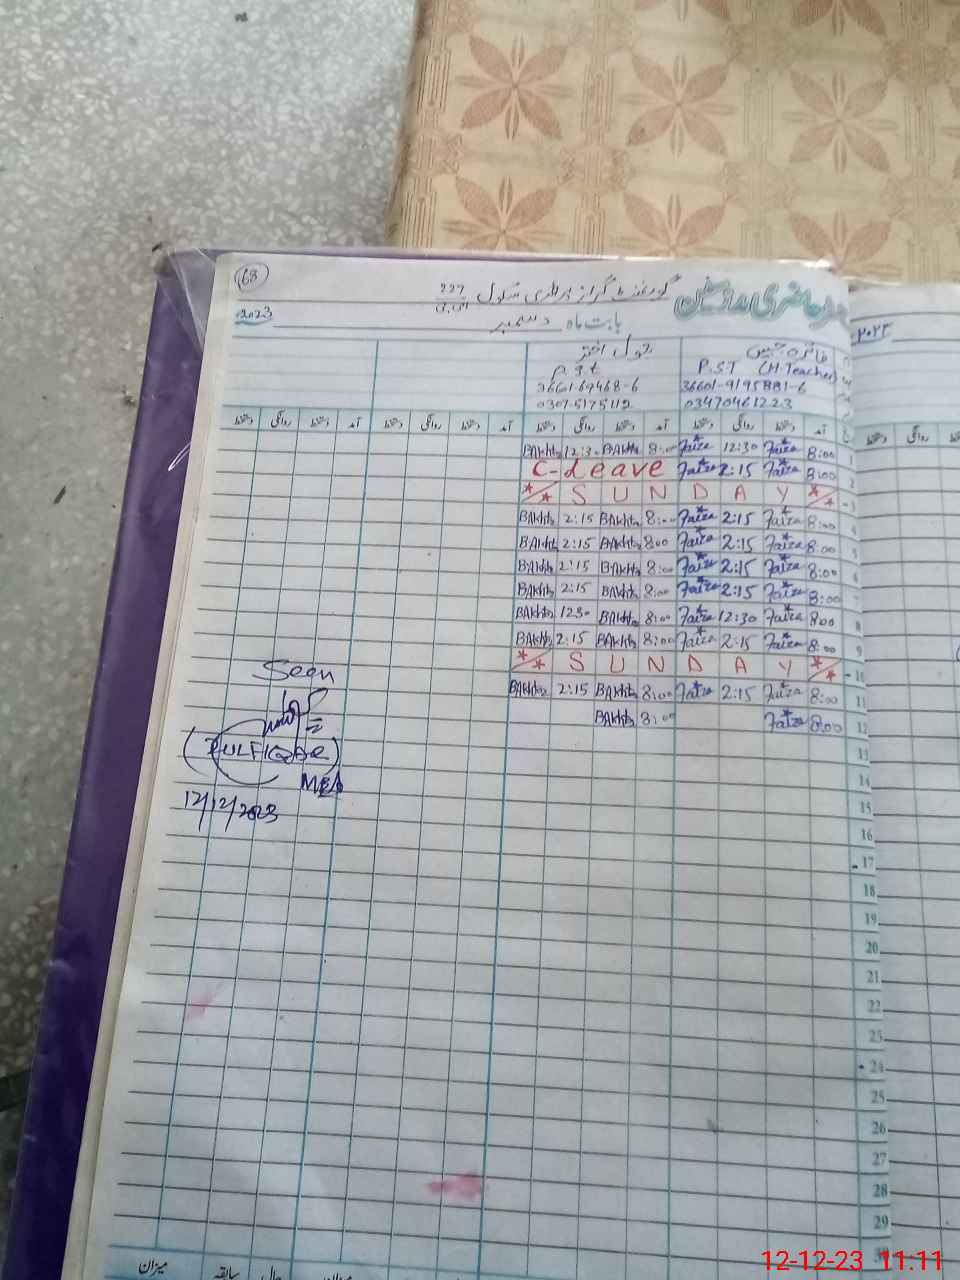 68
گورنمنٹ گرلز پرائمری سکول 227
2023
بابت ماہ دسمبر
۲۰۲۳
فائزہ جبیں
P.ST (H.Teacher)
36601-9195881-6
03470461223
بتول اختر
P.S.t
36601-69468-6
0307-5175112
آمد دستخط روانگی دستخط آمد دستخط روانگی دستخط آمد دستخط روانگی دستخط آمد دستخط روانگی دستخط
BAkhtr 12:30 BAkhtr 8:00 Faiza 12:30 Faiza 8:00 1
C-Leave Faiza 2:15 Faiza 8:00 2
S U N D A Y
BAkhtr 2:15 BAkhtr 8:00 Faiza 2:15 Faiza 8:00
BAkhtr 2:15 BAkhtr 8:00 Faiza 2:15 Faiza 8:00 5
BAkhtr 2:15 BAkhtr 8:00 Faiza 2:15 Faiza 8:00 6
BAkhtr 2:15 BAkhtr 8:00 Faiza 2:15 Faiza 8:00 7
BAkhtr 1230 BAkhtr 8:00 Faiza 12:30 Faiza 8:00 8
BAkhtr 2:15 BAkhtr 8:00 Faiza 2:15 Faiza 8:00 9
S U N D A Y 10
BAkhtr 2:15 BAkhtr 8:00 Faiza 2:15 Faiza 8:00 11
BAkhtr 8:00 Faiza 8:00 12
13
14
15
16
17
18
19
20
21
22
23
24
25
26
27
28
29
Seen
(ZULFIQAR)
MEA
12/12/2023
میزان سابقہ حال میزان
12-12-23 11:11